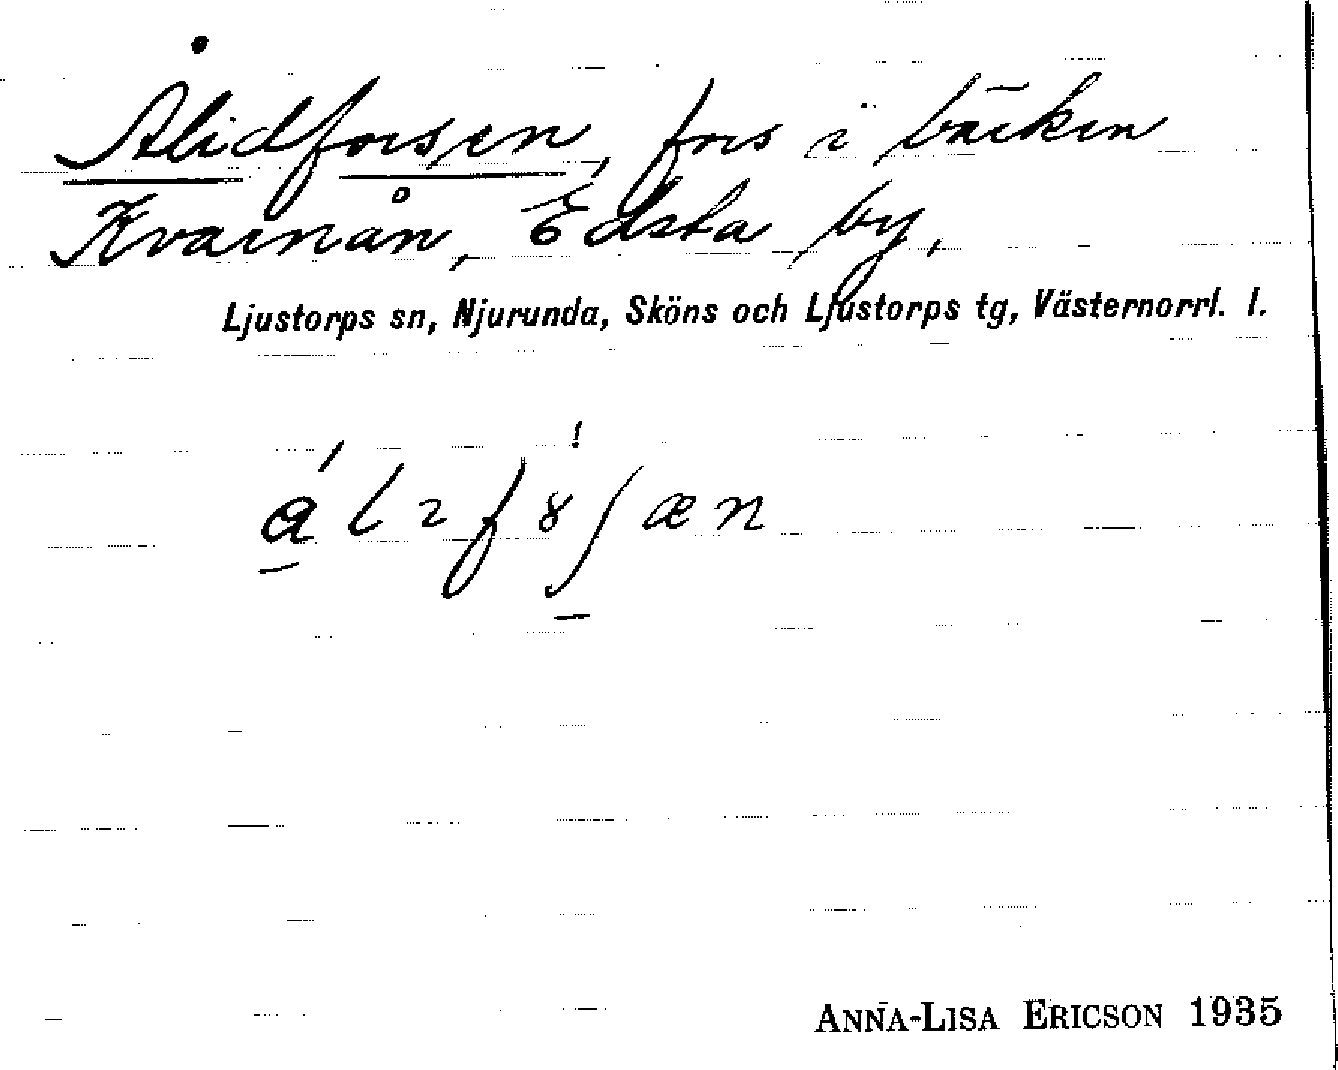 Ålidforsen, fors i bäcken
Kvarnån, Edsta by,
Ljustorps sn, Njurunda, Sköns och Ljustorps tg, Västernorrl. l.
ANNA-LISA ERICSON 1935